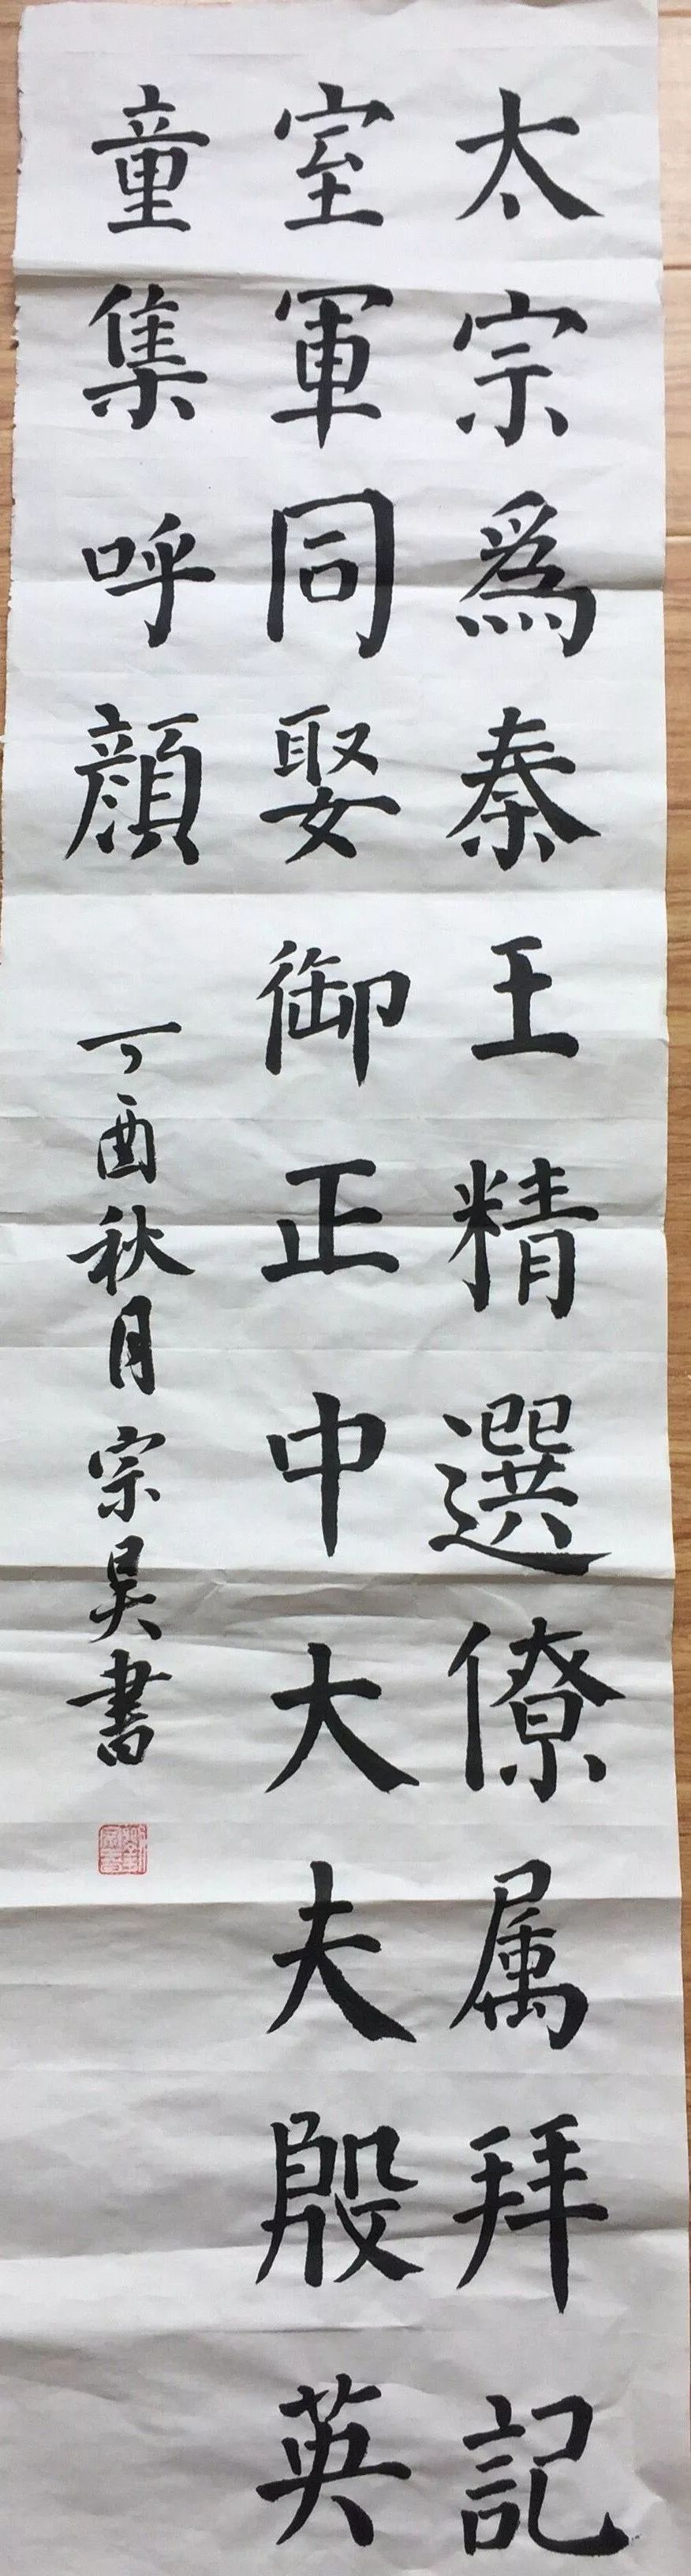 太宗為秦王精選僚属拜記
室軍同娶御正中大夫殷英
童集呼顏
丁酉秋月宗昊書